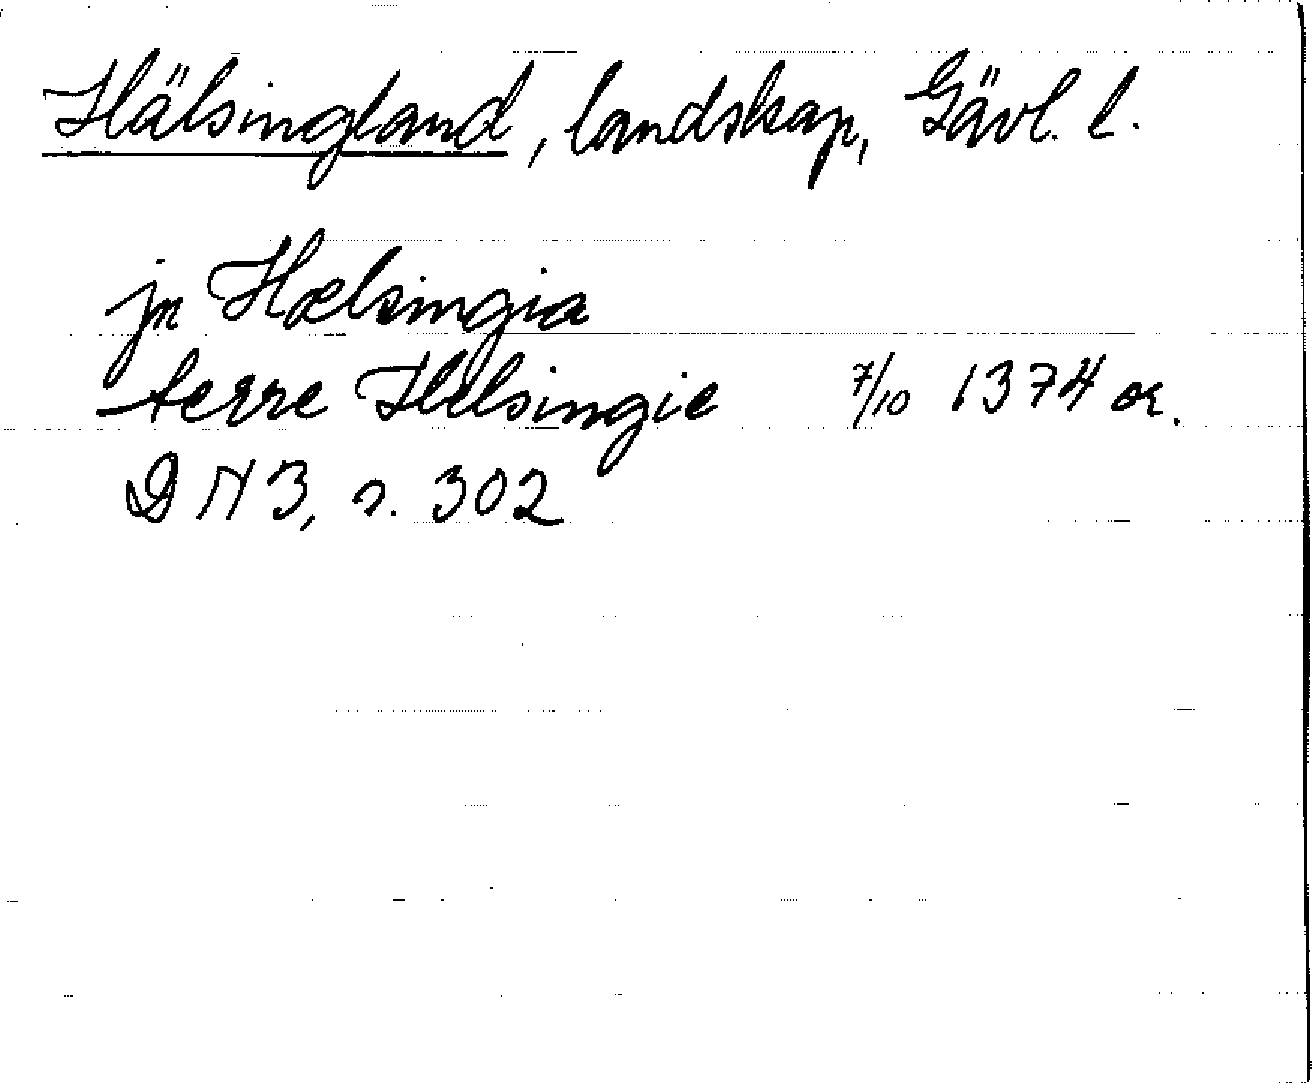 Hälsingland, landskap, Gävl. l.
jn Hælsingia
terre Helsingie 7/10 1374 or.
DN 3, s. 302